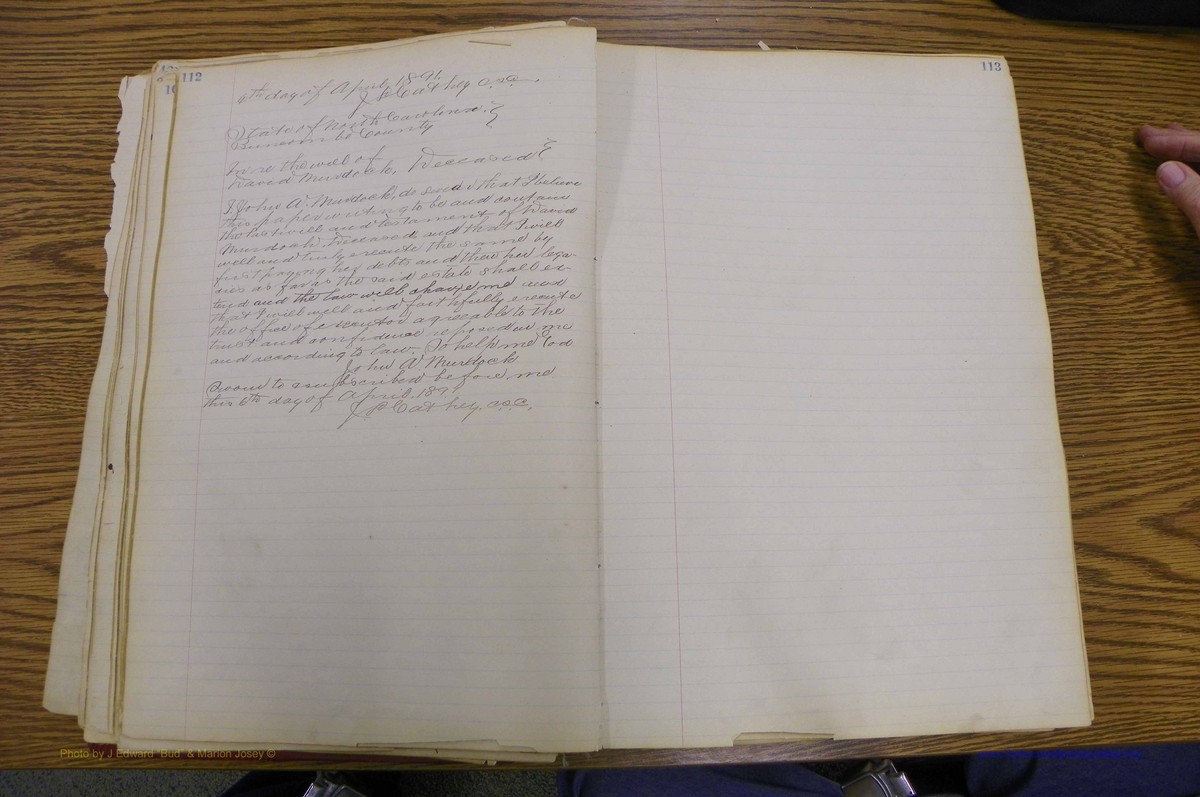 112
113
6th day of April 1891.
J.L. Cathey C.S.C.
State of North Carolina
Buncombe County
In re the will of
David Murdock, Deceased
I, John A. Murdock, do swear that I believe
this paper writing to be and contain
the last will and testament of David
Murdock Deceased and that I will
well and truly execute the same by
first paying his debts and then his lega-
cies as far as the said estate shall ex-
tend and the law will charge me and
that I will well and faithfully execute
the office of executor agreeable to the
trust and confidence reposed in me
and according to law. So help me God
John A Murdock
Sworn to and subscribed before me
this 6th day of April. 1891
Cathey. C.S.C.
Photo by J Edward "Bud" & Marion Josey ©